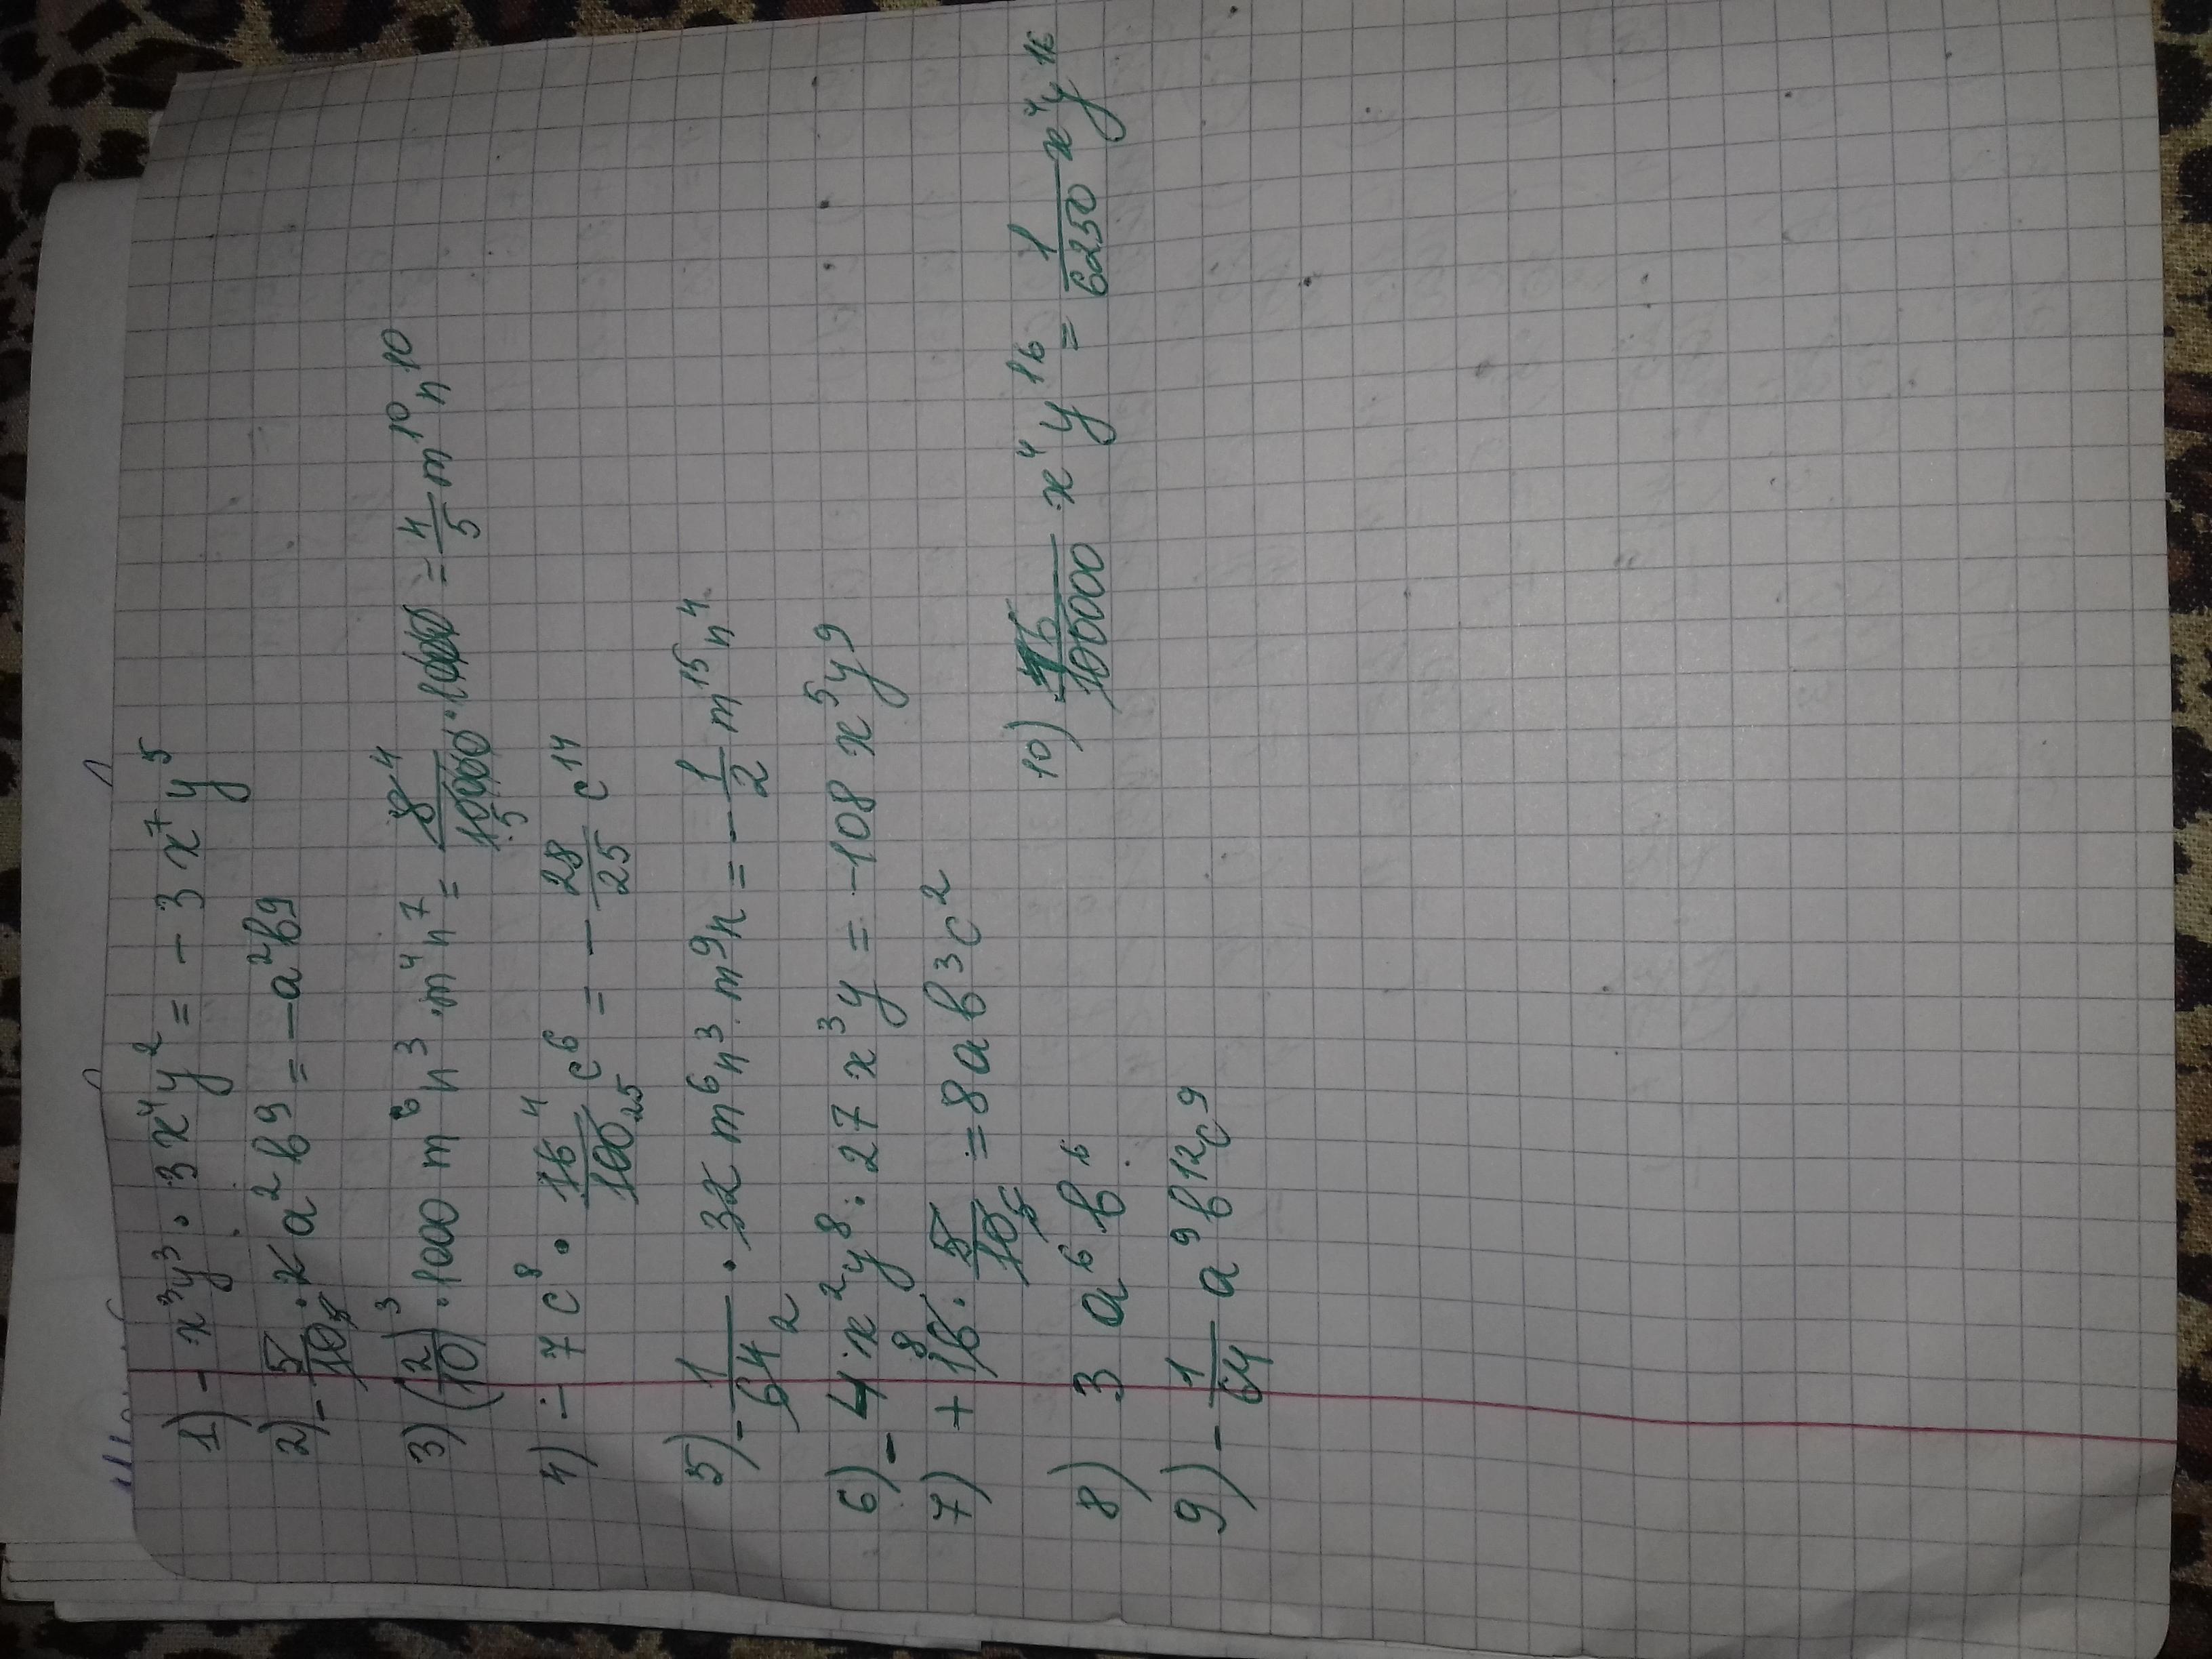 1) - x³y³ · 3x⁴y² = - 3x⁷y⁵
2) - 5/10 · 2 a²b⁹ = - a²b⁹
3) (2/10)³ · 1000 m⁶n³ · m⁴n⁷ = 8⁴/10000 5 · 1000 = 4/5 m¹⁰n¹⁰
4) - 7c⁸ · 16⁴/100 25 c⁶ = - 28/25 c¹⁴
5) - 1/64 2 · 32 m⁶n³ m⁹n = - 1/2 m¹⁵n⁴
6) - 4x²y⁸ · 27x³y = -108x⁵y⁹
7) + 16 8 · 5/10 = 8ab³c²
8) 3 a⁶b⁶
9) - 1/64 a⁹b¹²c⁹
10) 16/100000 x⁴y¹⁶ = 1/6250 x⁴y¹⁶